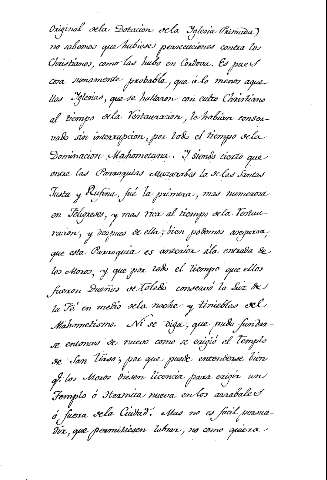 original de la Dotacion de la Iglesia Primada)
no sabemos que hubiese persecuciones contra los
Christianos, como las hubo en Cordova. Es pues
cosa sumamente probable, que á lo menos aque-
llas Iglesias, que se hallaron con culto Christiano
al tiempo de la Restauracion, le habian conser-
vado sin interrupcion, por todo el tiempo de la
Dominacion Mahometana. Y siendo cierto que
entre las Parroquias Muzarabes la de las Santas
Justa y Rufina, fué la primera, mas numerosa
en Feligreses, y mas rica al tiempo de la Restau-
racion, y despues de ella; bien podemos asegurar,
que esta Parroquia es anterior á la entrada de
los Moros, y que por todo el tiempo que ellos
fueron Dueños de Toledo conservó la Luz de
la Fé en medio de la noche y tinieblas del
Mahometismo. Ni se diga, que pudo fundar-
se entonces de nuevo como se erigió el Templo
de San Tirso; por que puede entenderse bien
q.e los Moros diesen licencia para erigir un
Templo ó Hermita nueva en los arrabales
ó fuera de la Ciudad. Mas no es facil persua-
dir, que permitiesen labrar, no como quiera